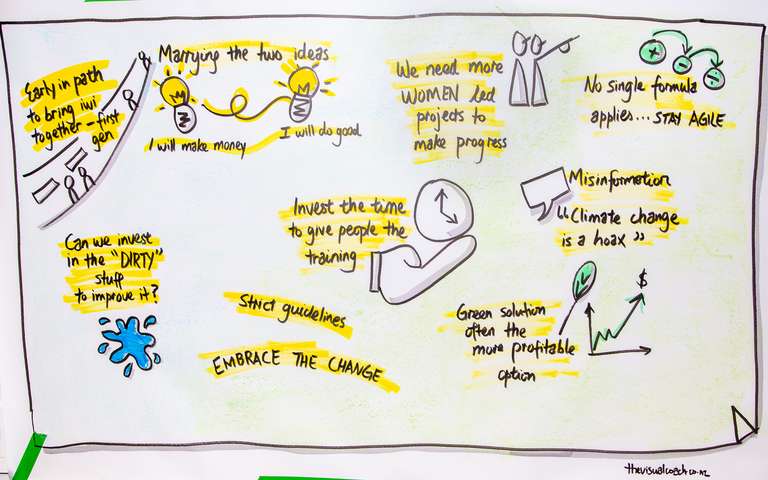 Early in path
to bring iwi
together - first
gen
Marrying the two ideas
I will make money
I will do good
We need more
WOMEN led
projects to
make progress
No single formula
applies... STAY AGILE
Invest the time
to give people the
training
Misinformation
"Climate change
is a hoax"
Can we invest
in the "DIRTY"
stuff
to improve it?
Strict guidelines
EMBRACE THE CHANGE
Green solution
often the
more profitable
option
$
thevisualcoach.co.nz